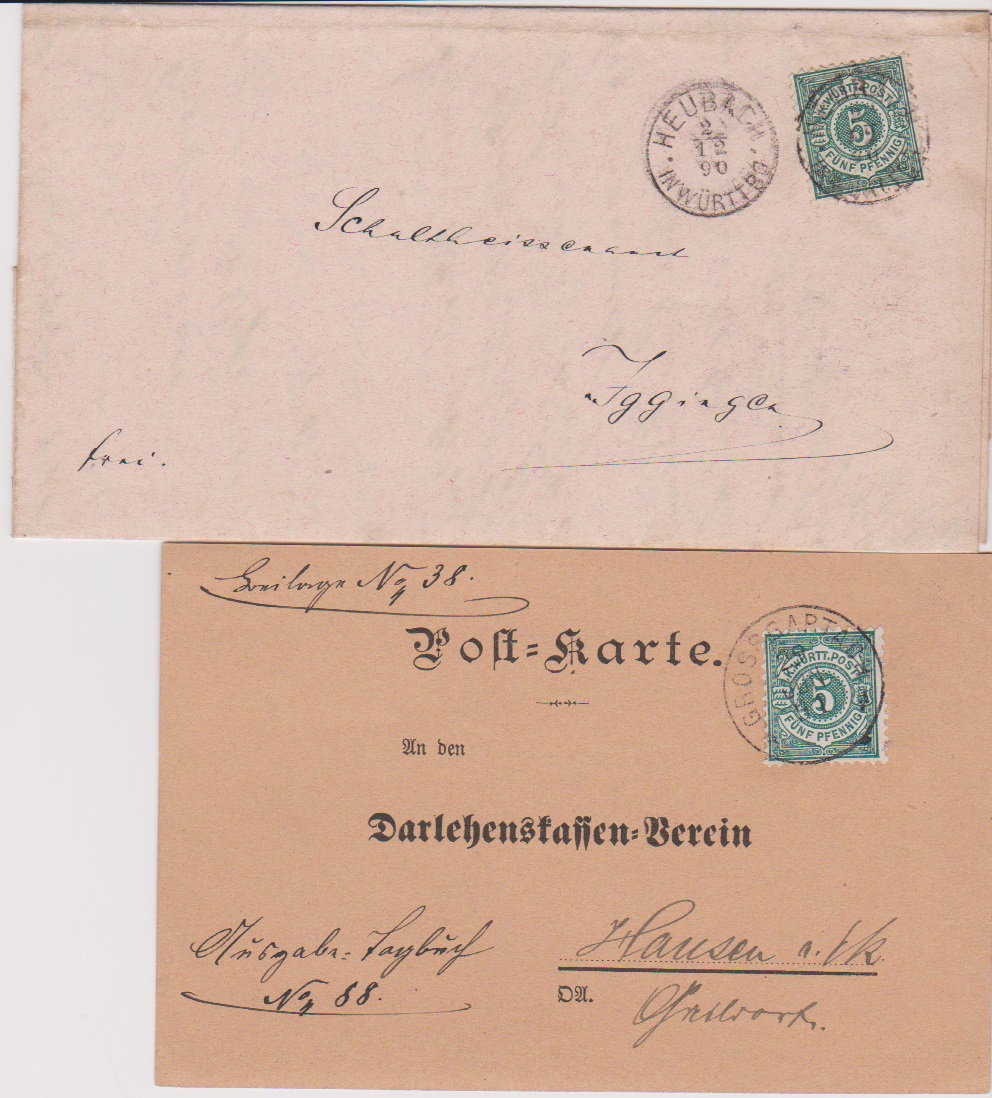 HEUBACH
24
12
90
IN WÜRTTBG
K.WÜRTT.POST
5
FÜNF PFENNIG
Schultheissenamt
Iggingen
frei.
Beilage No 38.
Post-Karte.
GROSSGARTACH
K.WÜRTT.POST
5
FÜNF PFENNIG
An den
Darlehenskassen-Verein
Ausgabe-Tagbuch
No 88.
Hausen a./
OA.